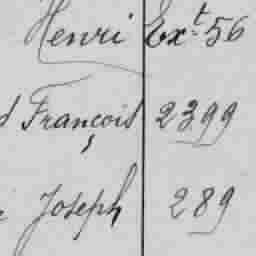 Henri Ext 56
d François 2399
Joseph 289